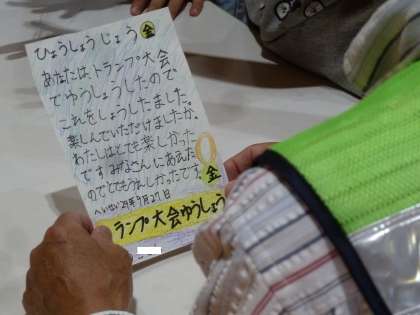 ひょうしょうじょう 金
あなたは、トランプ大会
でゆうしょうしたので
これをしょうしました。
楽しんでいただけましたか。
わたしはとても楽しかった
です。みなさんにあえた
のでとてもうれしかったです。
金
へいせい29年7月27日
ランプ大会ゆうしょう